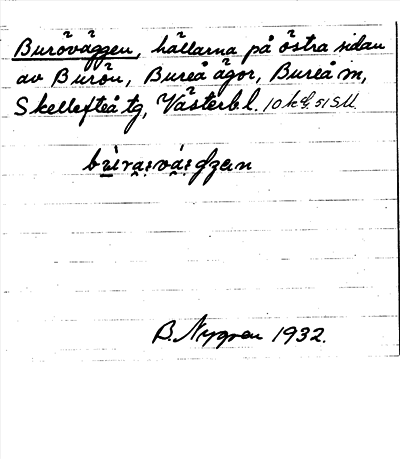 Buröväggen, hällarna på östra sidan
av Burön, Bureå ägor, Bureå sn,
Skellefteå tg, Västerb l.
B. Nygren 1932.